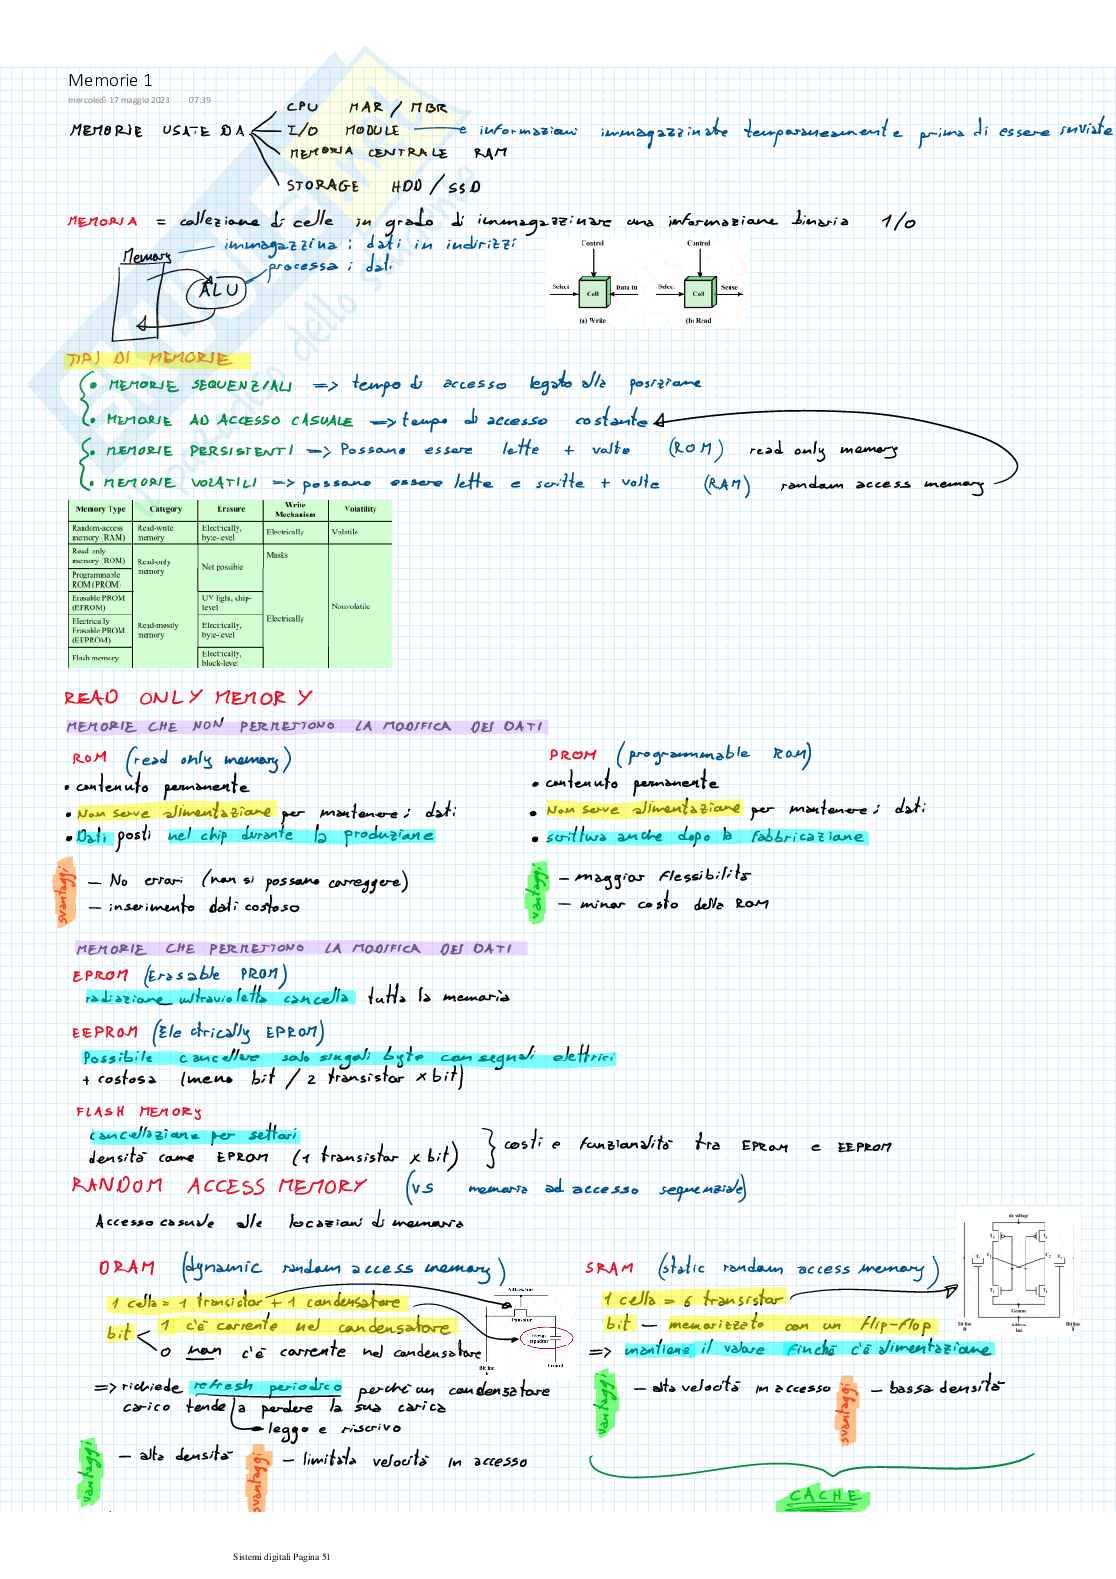 Memorie 1
mercoledì 17 maggio 2023 07:39
MEMORIE USATE DA
CPU MAR / MBR
I/O MODULE e informazioni immagazzinate temporaneamente prima di essere inviate
MEMORIA CENTRALE RAM
STORAGE HDD / SSD
MEMORIA = collezione di celle in grado di immagazzinare una informazione binaria 1/0
Memory immagazzina i dati in indirizzi
processa i dati
ALU
Control
Select Cell Data in
(a) Write
Control
Select Cell Sense
(b) Read
TIPI DI MEMORIE
• MEMORIE SEQUENZIALI => tempo di accesso legato alla posizione
• MEMORIE AD ACCESSO CASUALE => tempo di accesso costante
• MEMORIE PERSISTENTI => Possono essere lette + volte (ROM) read only memory
• MEMORIE VOLATILI => possono essere lette e scritte + volte (RAM) random access memory
Memory Type Category Erasure Write Mechanism Volatility
Random-access memory (RAM) Read-write memory Electrically, byte-level Electrically Volatile
Read-only memory (ROM) Read-only memory Not possible Masks Nonvolatile
Programmable ROM (PROM) Electrically
Erasable PROM (EPROM) Read-mostly memory UV light, chip-level
Electrically Erasable PROM (EEPROM) Electrically, byte-level
Flash memory Electrically, block-level
READ ONLY MEMORY
MEMORIE CHE NON PERMETTONO LA MODIFICA DEI DATI
ROM (read only memory)
• contenuto permanente
• Non serve alimentazione per mantenere i dati
• Dati posti nel chip durante la produzione
svantaggi
– No errori (non si possono correggere)
– inserimento dati costoso
PROM (programmable ROM)
• contenuto permanente
• Non serve alimentazione per mantenere i dati
• scrittura anche dopo la fabbricazione
vantaggi
– maggior flessibilità
– minor costo della ROM
MEMORIE CHE PERMETTONO LA MODIFICA DEI DATI
EPROM (Erasable PROM)
radiazione ultravioletta cancella tutta la memoria
EEPROM (Electrically EPROM)
Possibile cancellare solo singoli byte con segnali elettrici
+ costosa (meno bit / 2 transistor x bit)
FLASH MEMORY
cancellazione per settori
densità come EPROM (1 transistor x bit) } costi e funzionalità tra EPROM e EEPROM
RANDOM ACCESS MEMORY (vs memoria ad accesso sequenziale)
Accesso casuale alle locazioni di memoria
DRAM (dynamic random access memory)
1 cella = 1 transistor + 1 condensatore
bit
1 c'è corrente nel condensatore
0 non c'è corrente nel condensatore
=> richiede refresh periodico perché un condensatore
carico tende a perdere la sua carica
leggo e riscrivo
vantaggi
– alta densità
svantaggi
– limitata velocità in accesso
Address line
Transistor
Storage capacitor
Bit line
Ground
SRAM (static random access memory)
1 cella = 6 transistor
bit – memorizzato con un flip-flop
=> mantiene il valore finché c'è alimentazione
vantaggi
– alta velocità in accesso
svantaggi
– bassa densità
dc voltage
Ground
Bit line
Address line
Bit line
CACHE
Sistemi digitali Pagina 51